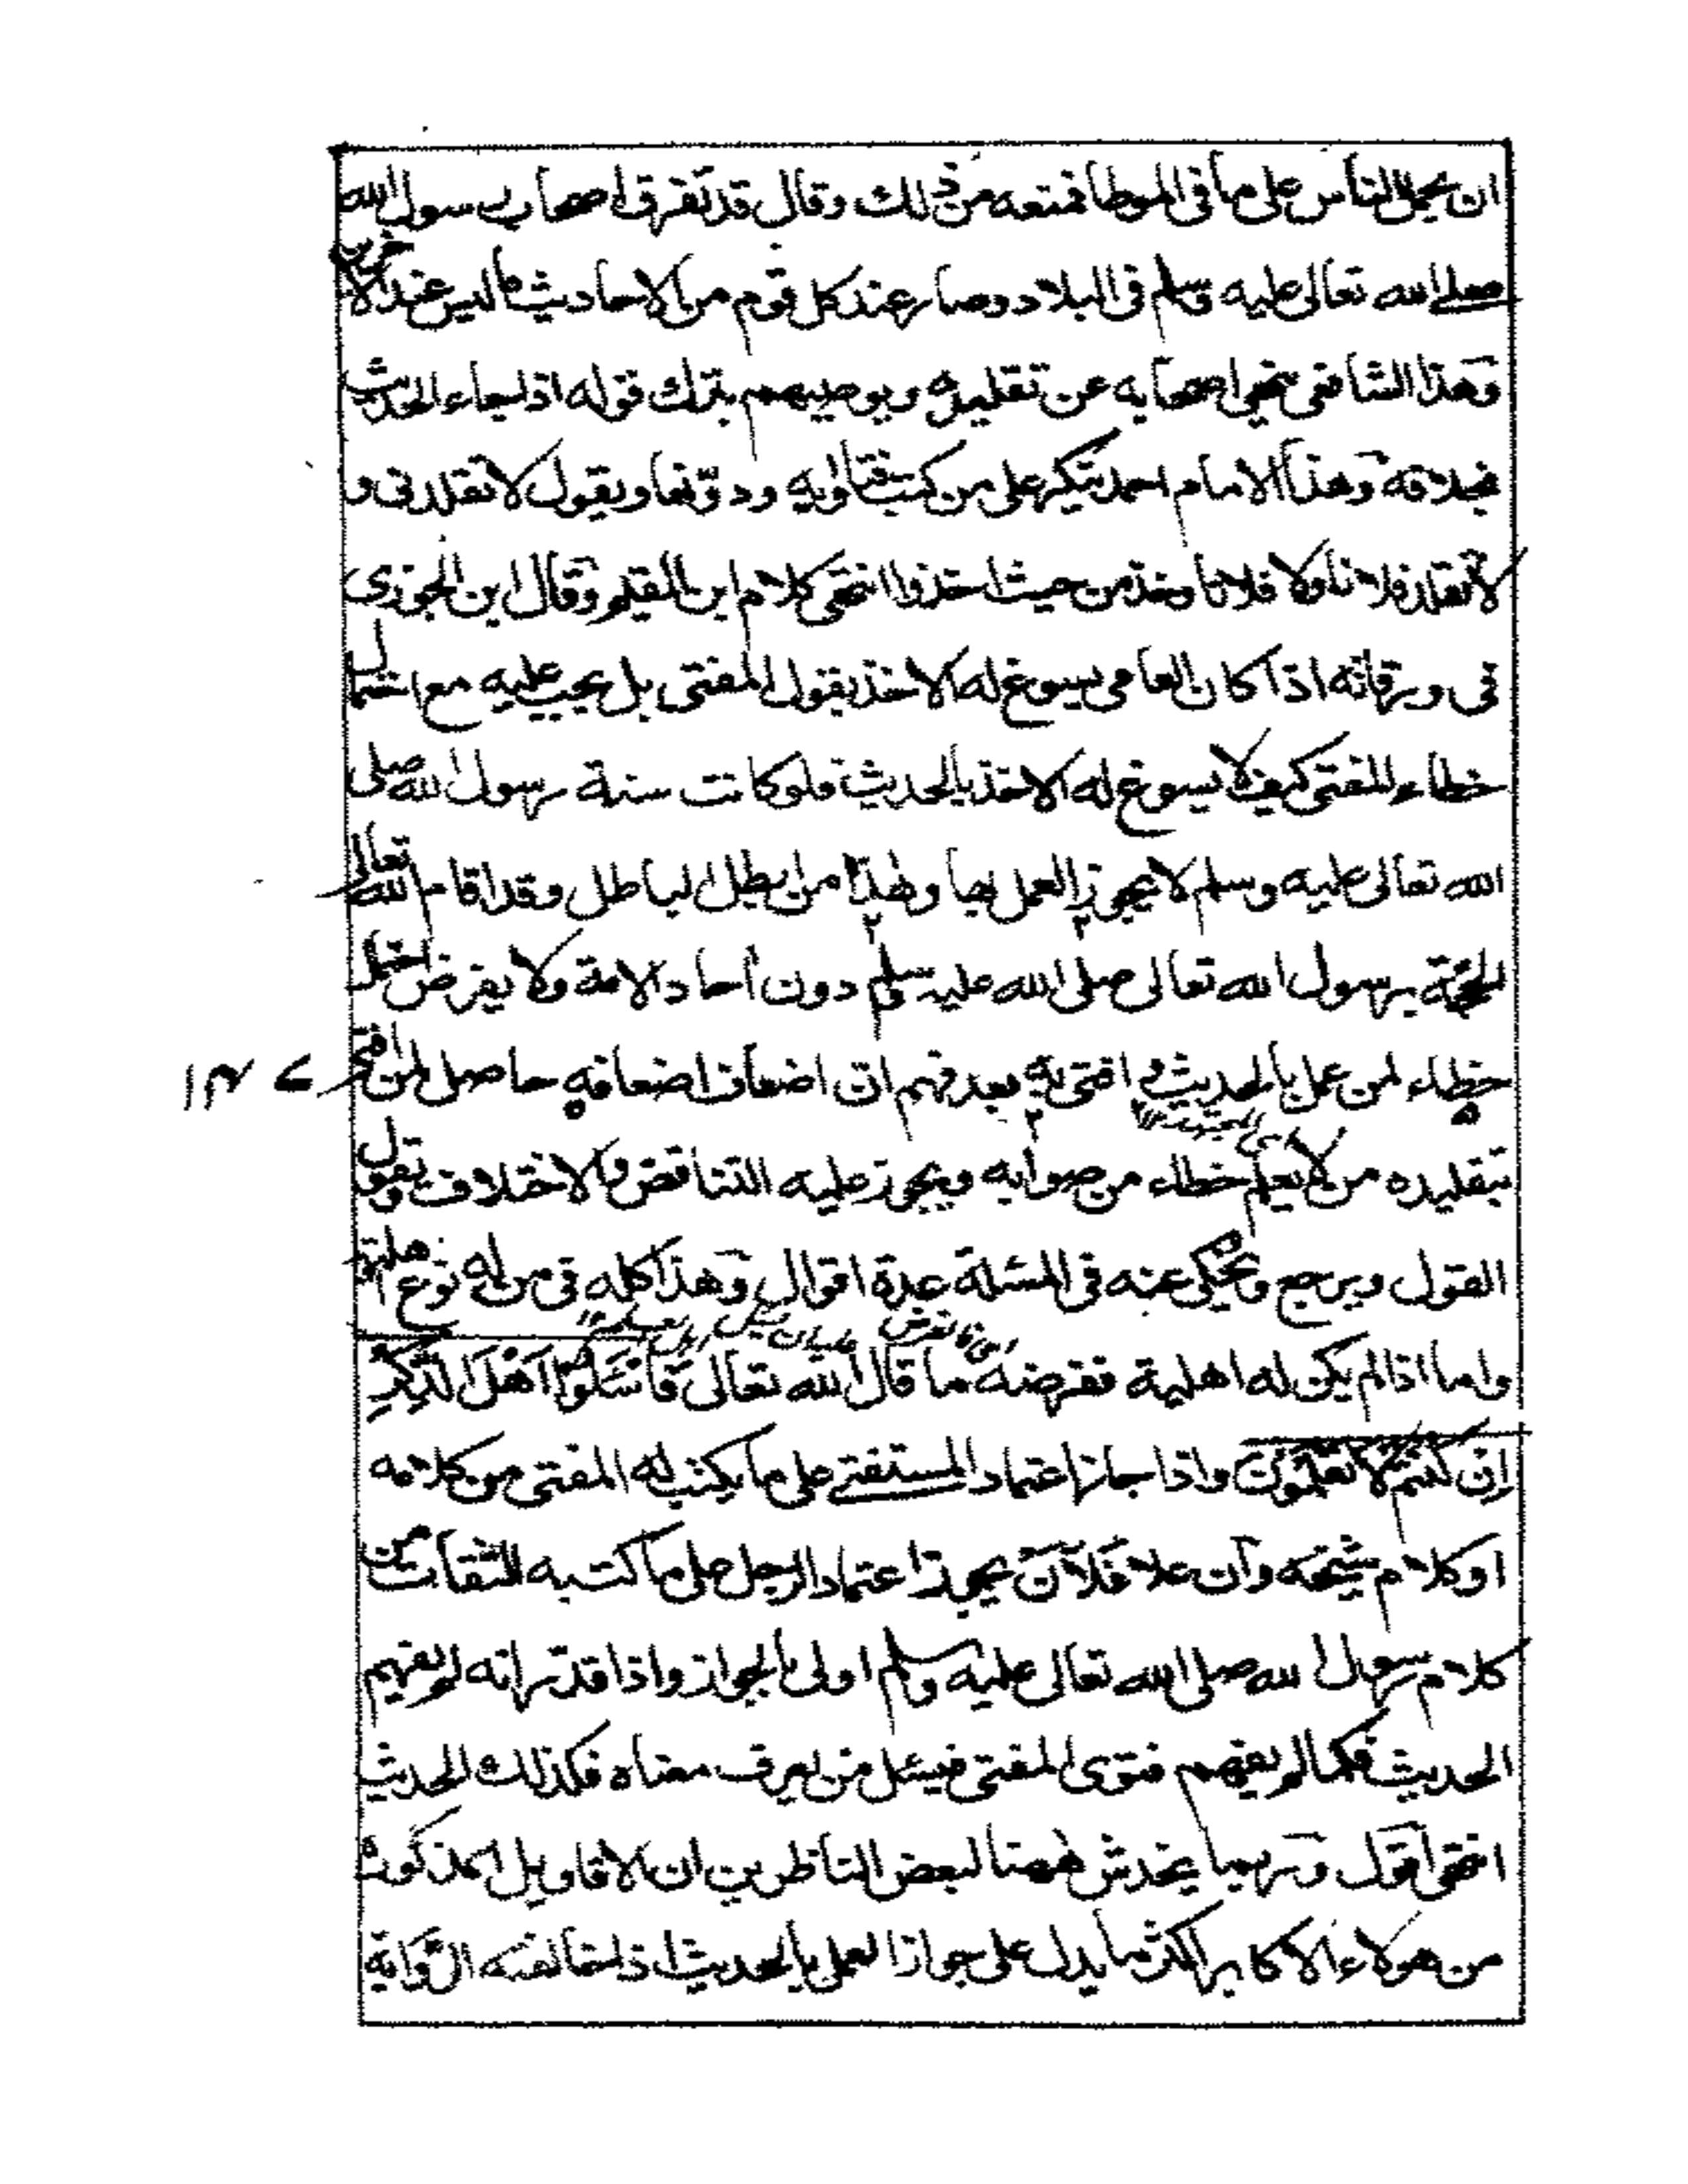 ان يحمل الناس على ما فى الموطا فمنعه من ذلك وقال قد تفرق اصحاب رسول الله
صلے الله تعالى عليه وسلم فى البلاد وصار عند كل قوم من الاحاديث ما ليس عند الاخرين
وهذا الشافعى نهى اصحابه عن تقليده ويوصيهم بترك قوله اذا جاء الحديث
بخلافه وهذا الامام احمد ينكر على من كتب فتاويه ودونها ويقول لا تقلدنى و
لا تقلد فلانا ولا فلانا وخذ من حيث اخذوا انتهى كلام ابن القيم وقال ابن الجوزى
فى ورقاته اذا كان العامى يسوغ له الاخذ بقول المفتى بل يجب عليه مع احتمال
خطاء المفتى كيف لا يسوغ له الاخذ بالحديث فلو كانت سنة رسول الله صلى
الله تعالى عليه وسلم لا يجوز العمل بها وهذا من ابطل الباطل وقد اقام الله تعالى
الحجة برسول الله تعالى صلى الله عليه وسلم دون احاد الامة ولا يفرض احتمال
خطاء لمن عمل بالحديث و افتى به بعد فهم ان اضعاف اضعافه حاصل لمن افتى
بتقليده من لا يعلم خطاء من صوابه ويجوز عليه التناقض والاختلاف ويقول
القول ويرجع ويحكى عنه فى المسئلة عدة اقوال وهذا كله فى من له نوع اهلية
واما اذا لم يكن له اهلية ففرضه ما قال الله تعالى فَاسْئَلُوْا اَهْلَ الذِّكْرِ
اِنْ كُنْتُمْ لَا تَعْلَمُوْنَ واذا جاز اعتماد المستفتے على ما يكتب له المفتى من كلامه
او كلام شيخه وان علا فلان يجوز اعتماد الرجل على ما كتبه الثقات من
كلام رسول الله صلى الله تعالى عليه وسلم اولى بالجواز واذا قدر انه لم يفهم
الحديث فكما لم يفهم فتوى المفتى فيسئل من يعرف معناه فكذلك الحديث
انتهى اقول وربما يخدش ههنا لبعض الناظرين ان الاقاويل المذكورة
من هولاء الاكابر اكثر ما يدل على جواز العمل بالحديث اذا خالفته الرواية